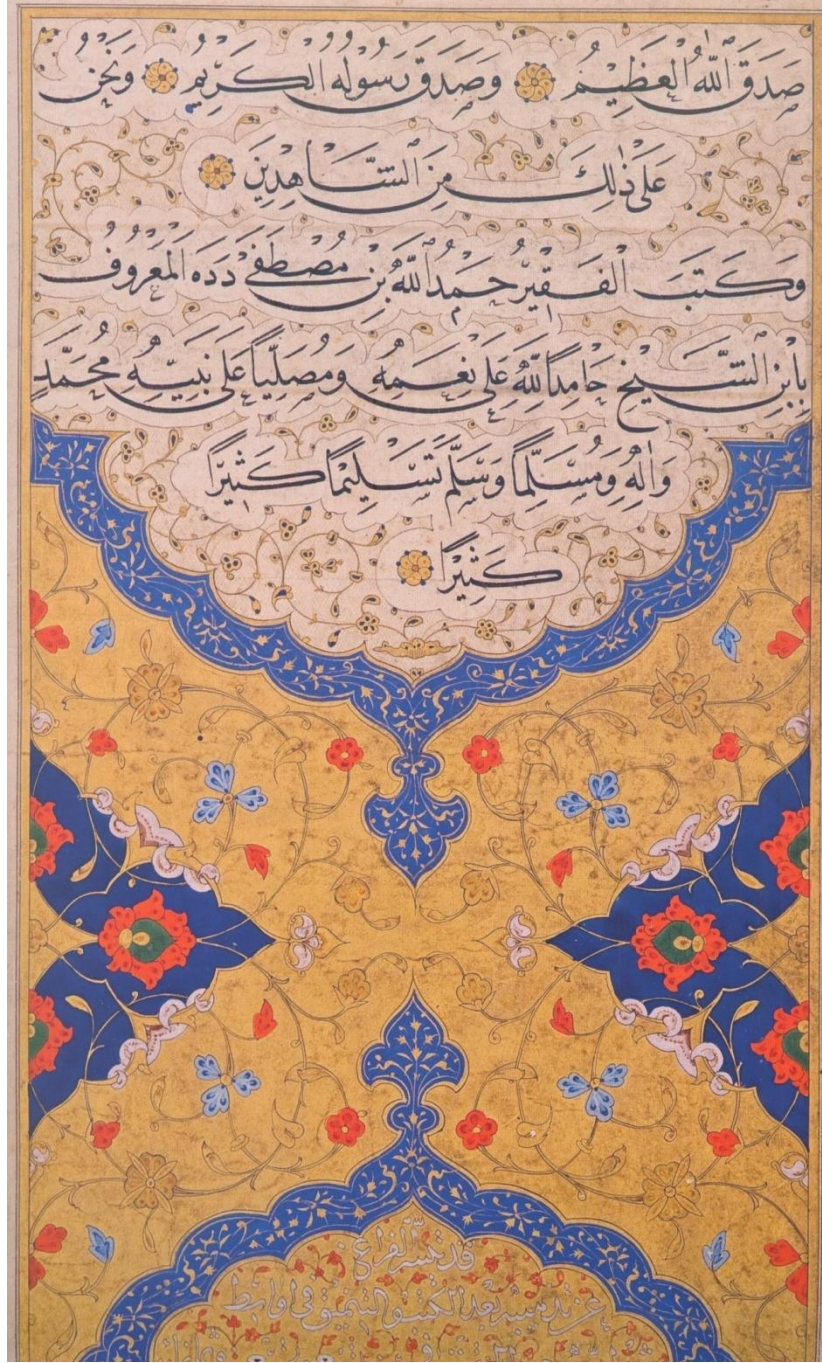 صَدَقَ ٱللّٰهُ الْعَظِيمُ وَصَدَقَ رَسُولُهُ الْكَرِيمُ وَنَحْنُ
عَلَى ذٰلِكَ مِنَ الشَّاهِدِينَ
وَكَتَبَ الْفَقِيرُ حَمْدُ ٱللّٰهِ بْنِ مُصْطَفَى دَدَه الْمَعْرُوفُ
بِابْنِ الشَّيْخِ حَامِدًا لِلّٰهِ عَلَى نِعَمِهِ وَمُصَلِّيًا عَلَى نَبِيِّهِ مُحَمَّدٍ
وَاٰلِهِ وَمُسَلِّمًا وَسَلَّمَ تَسْلِيمًا كَثِيرًا
كَثِيرًا
قد تيسر الفراغ